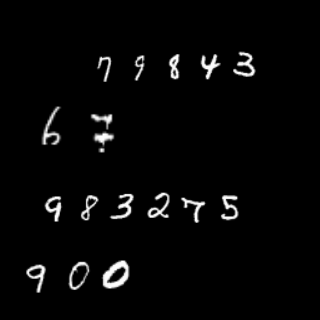 79843
67
983275
900